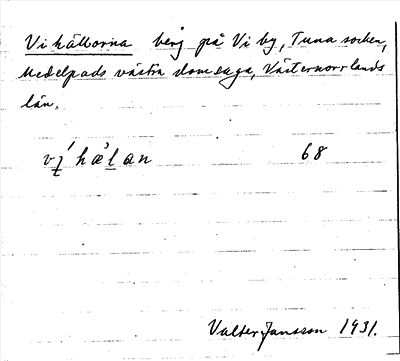 Vihällorna berg på Vi by, Tuna socken,
Medelpads västra domsaga, Västernorrlands
län.
vi̠´hæ`l̠an 68
Valter Jansson 1931.